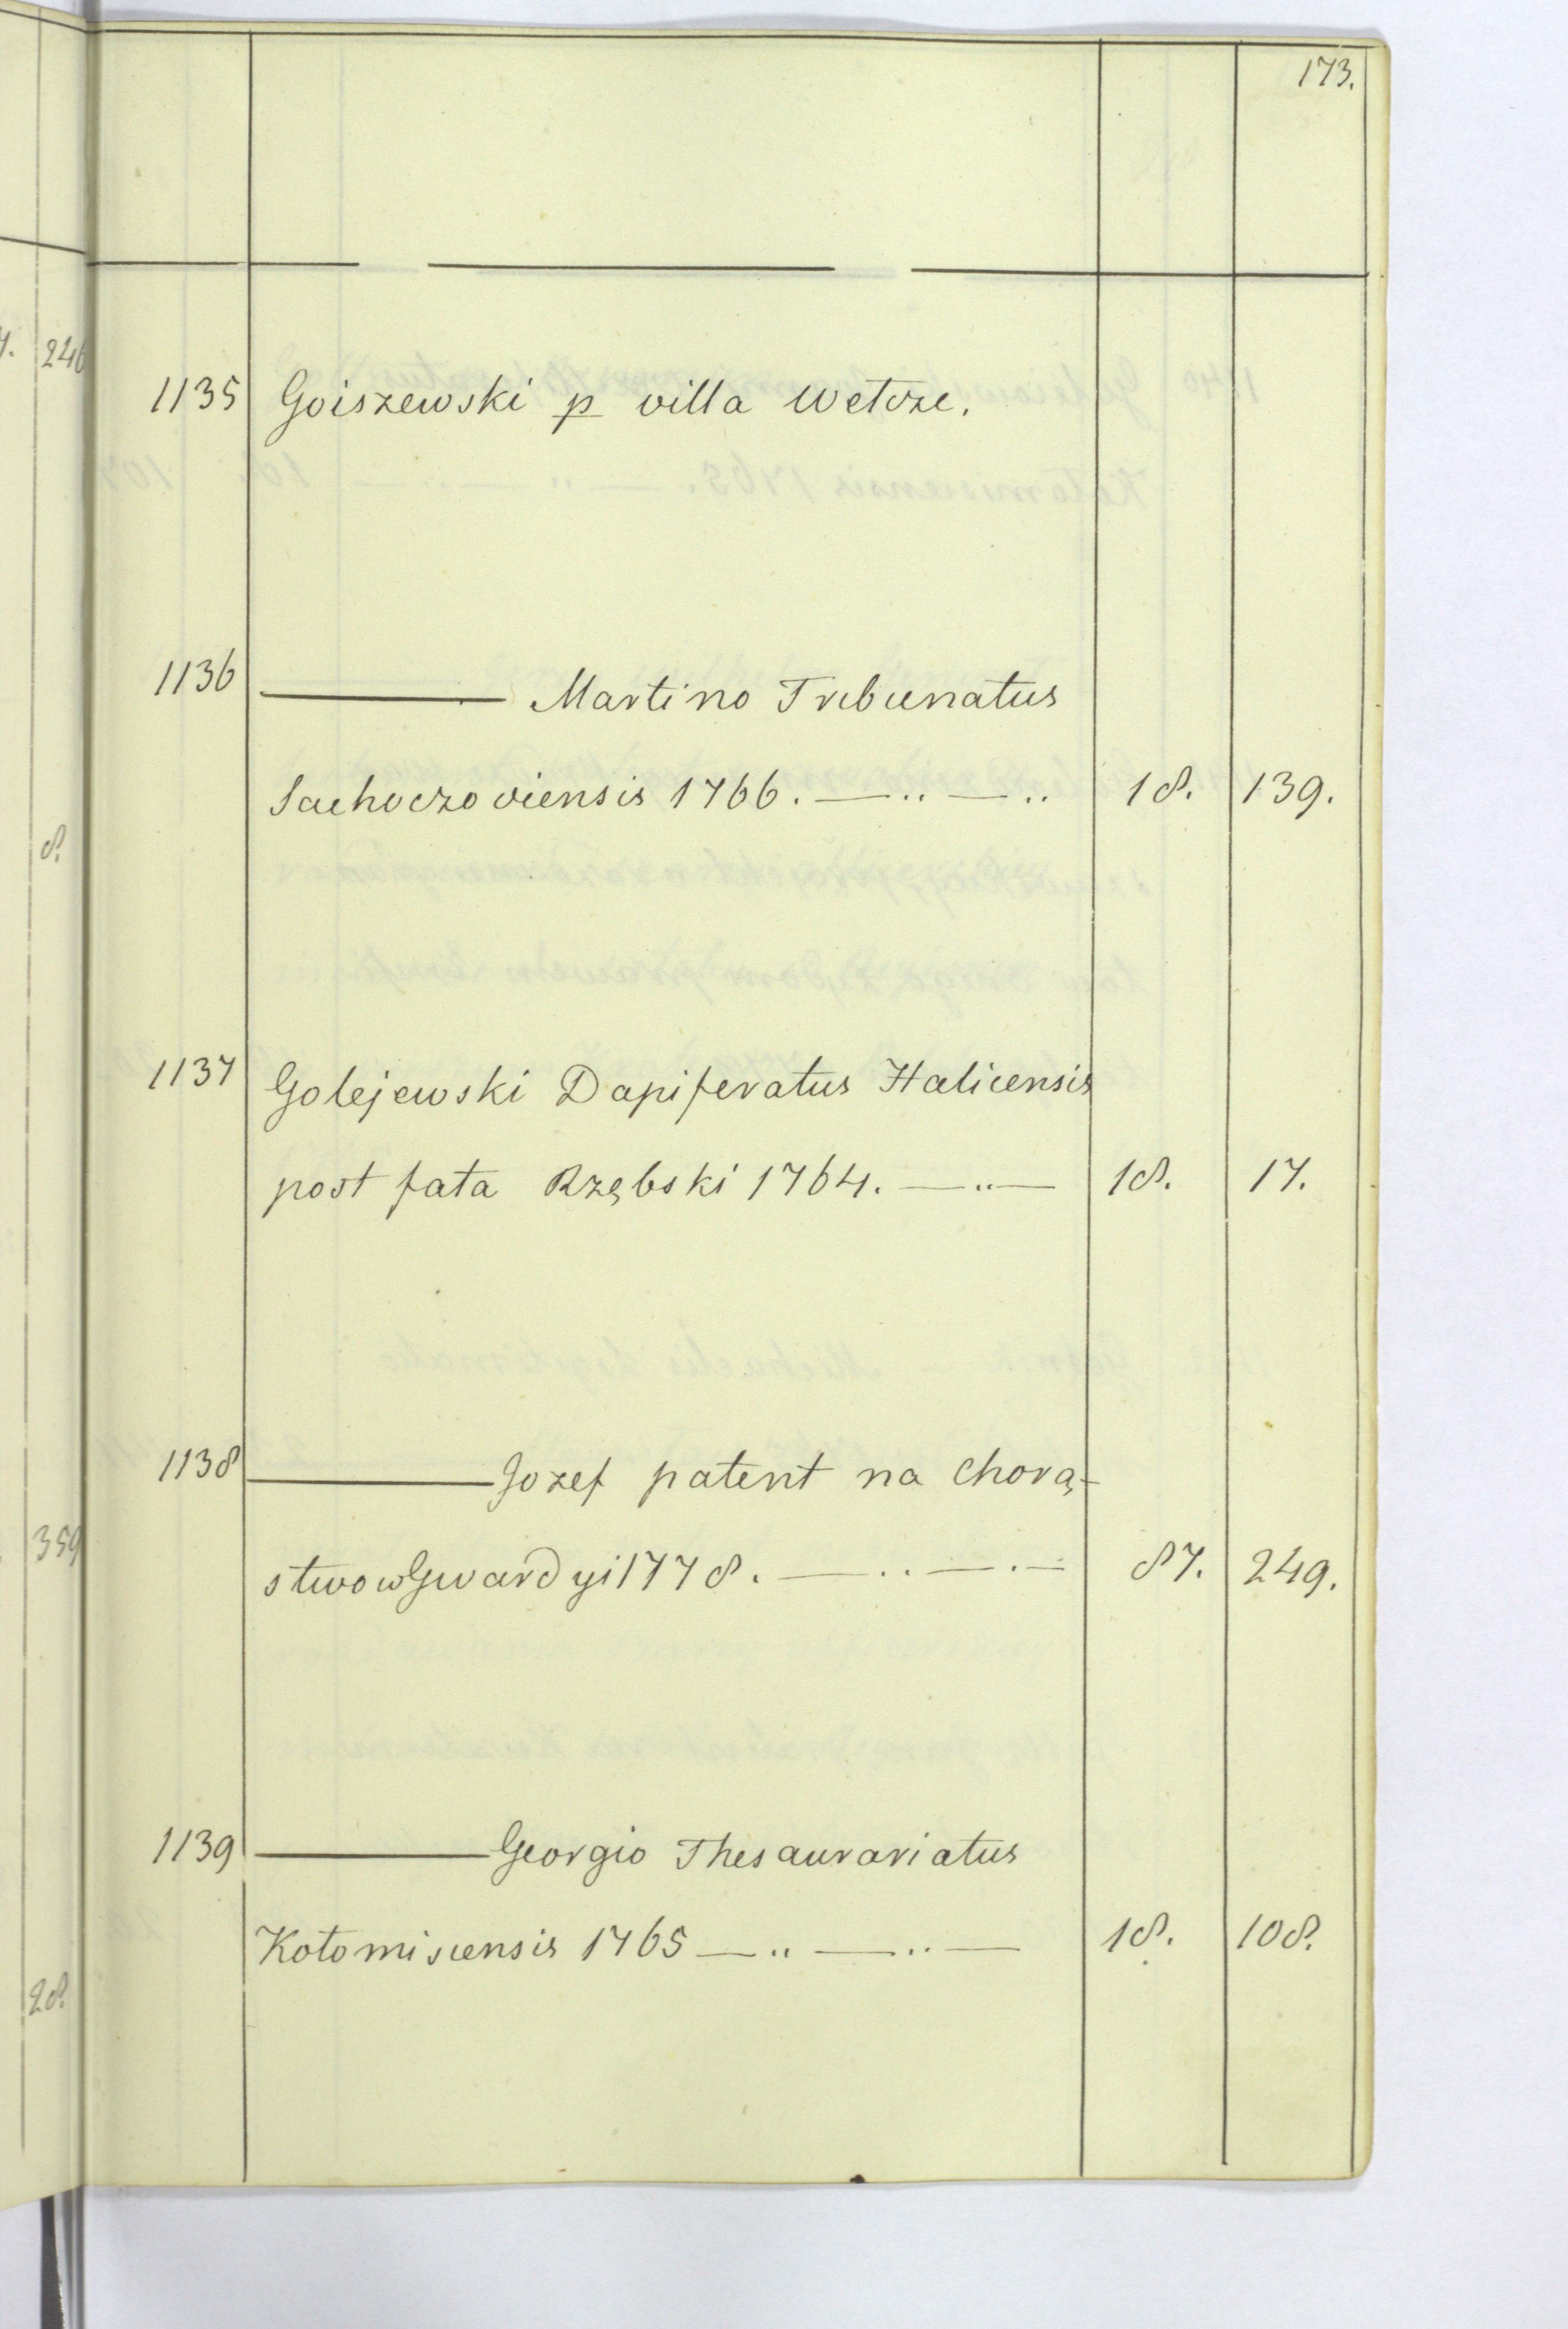 173.
1135 Goiszewski p villa Wetcze.
1136 ——— Martino Tribunatus
Sachoczoviensis 1766. — .. — .. 18. 139.
1137 Golejewski Dapiferatus Halicensis
post fata Rzębski 1764. — .. — 18. 17.
1138 ——— Jozef patent na chorą-
stwo w Gwardyi 1778. — .. — . — 87. 249.
1139 ——— Georgio Thesaurariatus
Kołomisensis 1765 — .. — .. — 18. 108.
246
8.
359
28.